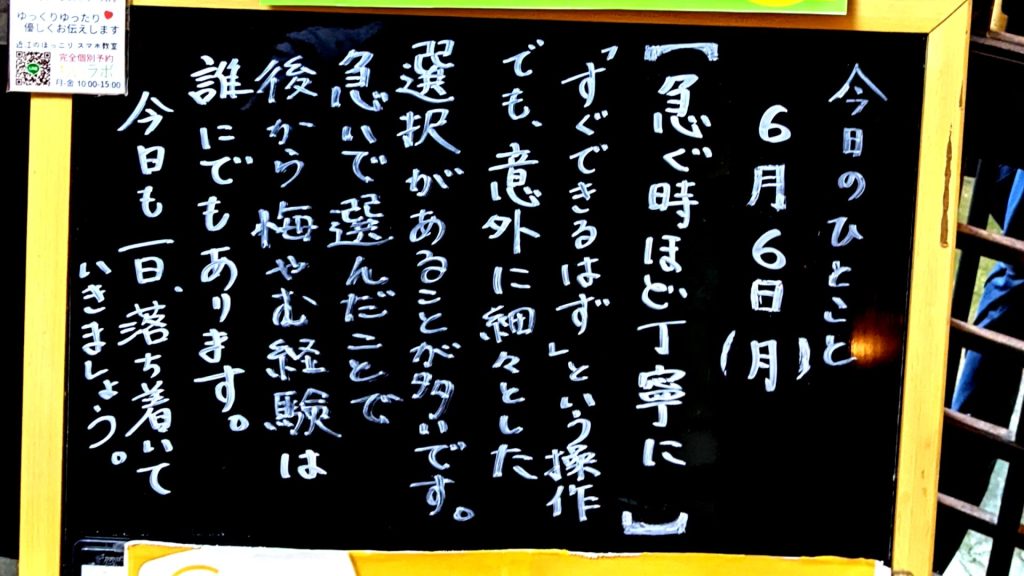 今日のひとこと
6月6日(月)
【急ぐ時ほど丁寧に】
「すぐできるはず」という操作
でも、意外に細々とした
選択があることが多いです。
急いで選んだことで
後から悔やむ経験は
誰にでもあります。
今日も一日、落ち着いて
いきましょう。
ゆっくりゆったり
優しくお伝えします
近江のほっこりスマホ教室
完全個別予約
ラボ
月-金 10:00-15:00